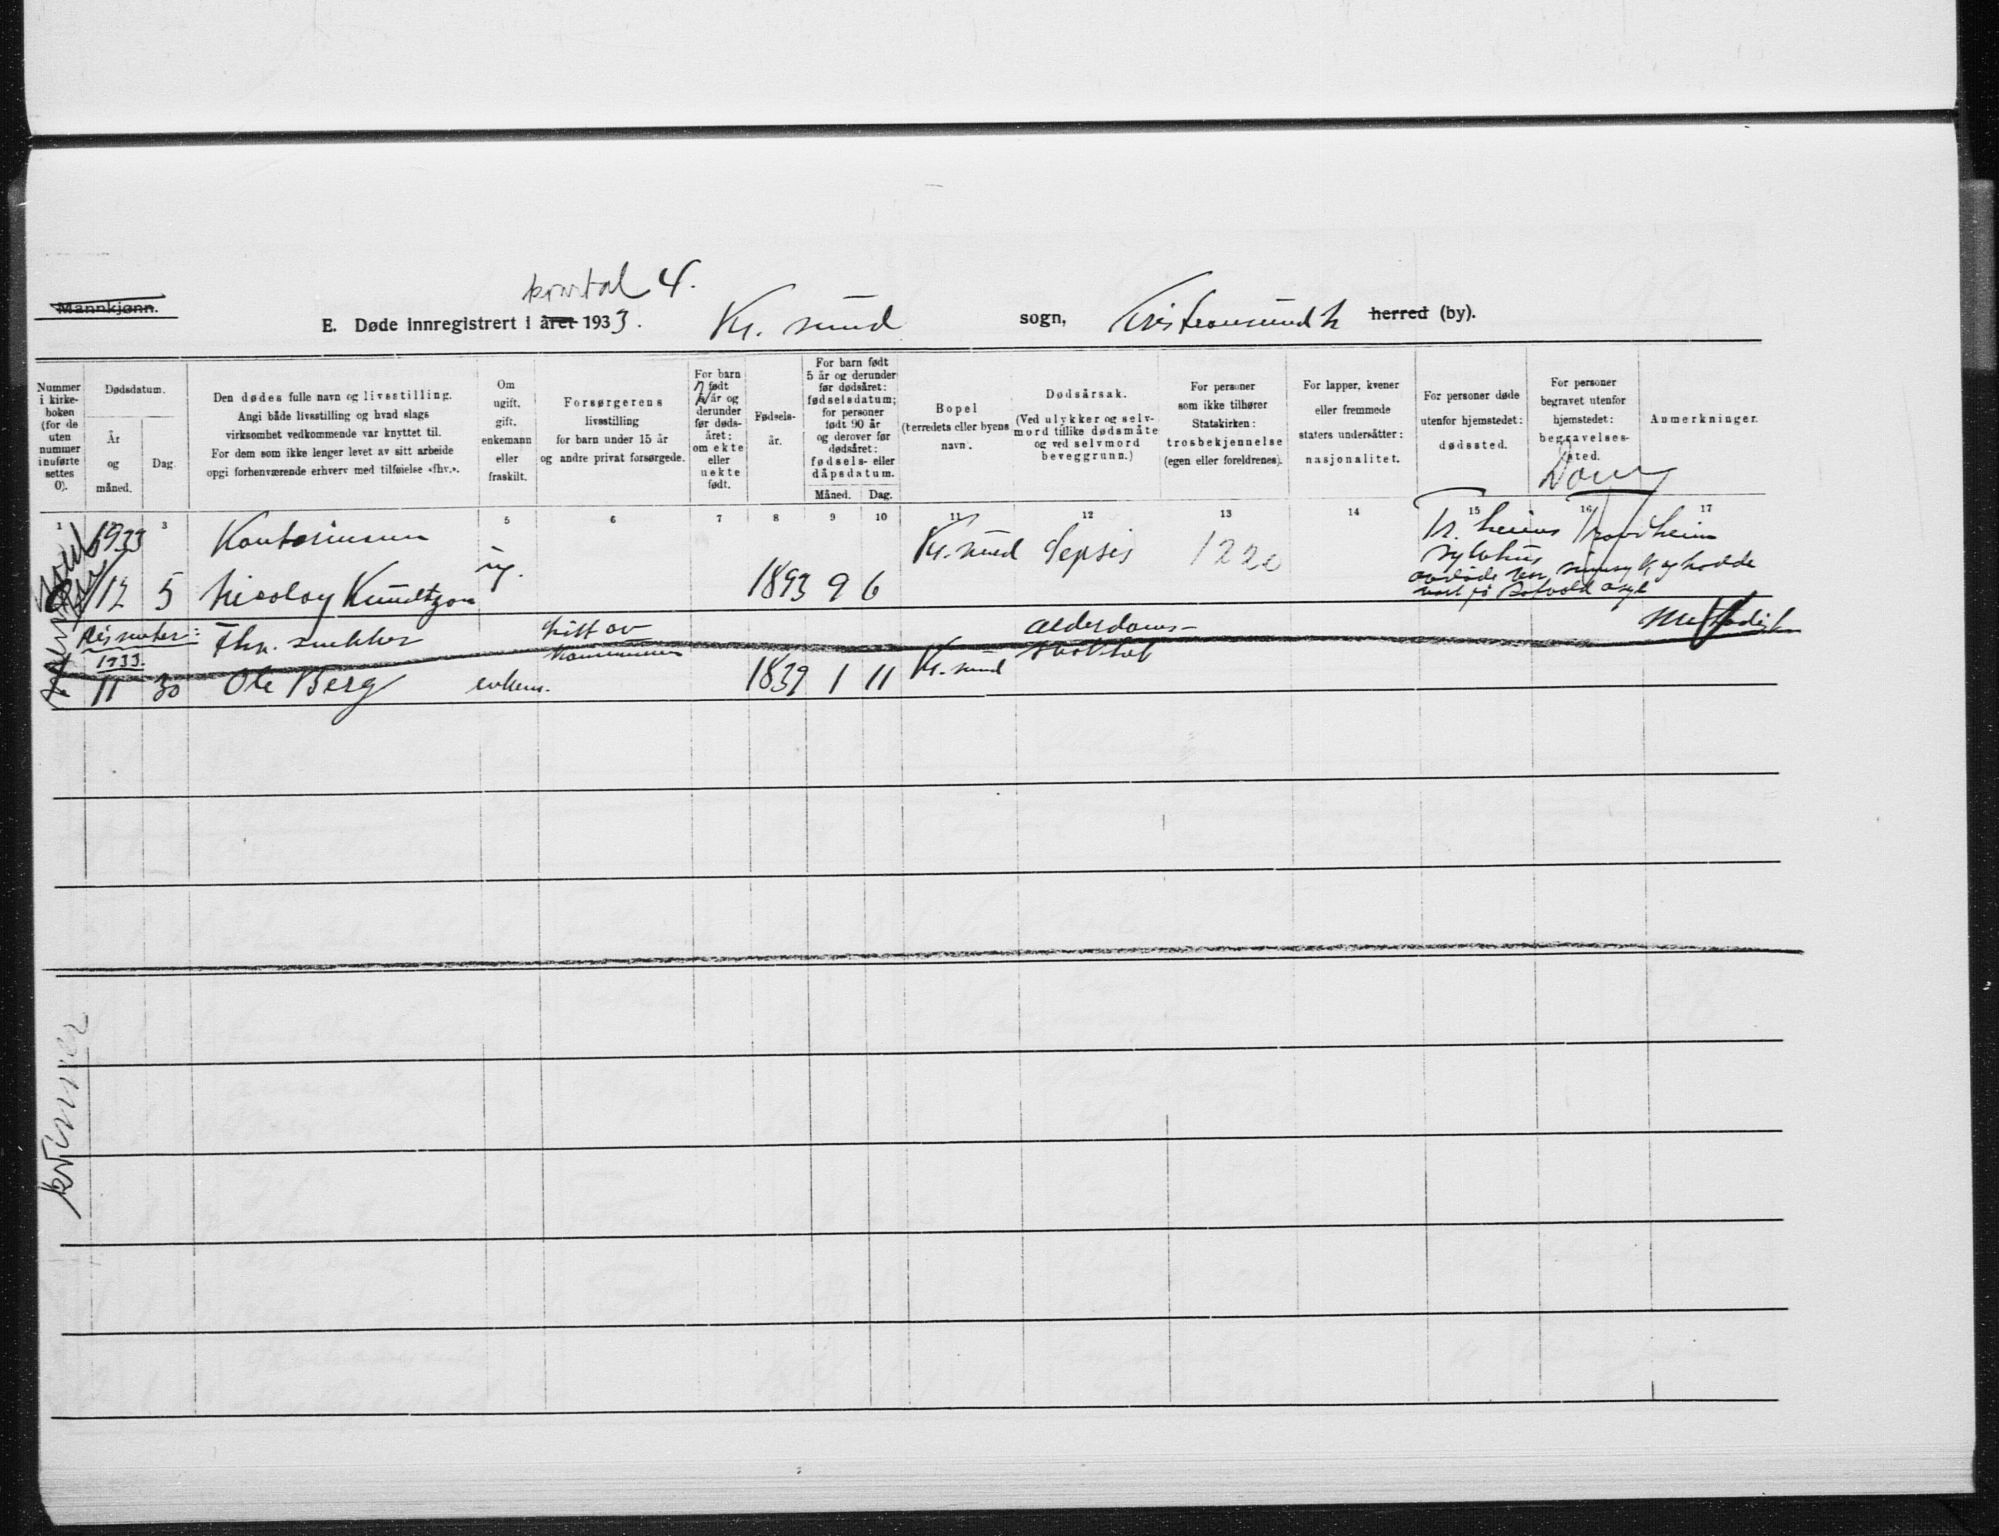 kvartal 4.
Mannkjønn.
E. Døde innregistrert i året 1933. Kr. sund sogn, Kristiansund N herred (by).
Nummer i kirkeboken (for de uten nummer innførte settes 0).
Dødsdatum.
År og måned.
Dag.
Den dødes fulle navn og livsstilling.
Angi både livsstilling og hvad slags
virksomhet vedkommende var knyttet til.
For dem som ikke lenger levet av sitt arbeide
opgi forhenværende erhverv med tilføielse «fhv.».
Om
ugift,
gift,
enkemann
eller
fraskilt.
Forsørgerens
livsstilling
for barn under 15 år
og andre privat forsørgede.
For barn
født
år og
derunder
før døds-
året:
om ekte
eller
uekte
født.
Fødsels-
år.
For barn født
5 år og derunder
før dødsåret:
fødselsdatum;
for personer
født 90 år
og derover før
dødsåret:
fødsels- eller
dåpsdatum.
Måned. Dag.
Bopel
(herredets eller byens
navn).
Dødsårsak.
(Ved ulykker og selv-
mord tillike dødsmåte
og ved selvmord
beveggrunn.)
For personer
som ikke tilhører
Statskirken:
trosbekjennelse
(egen eller foreldrenes).
For lapper, kvener
eller fremmede
staters undersåtter:
nasjonalitet.
For personer døde
utenfor hjemstedet:
dødssted.
For personer
begravet utenfor
hjemstedet:
begravelses-
sted.
Anmerkninger.
1 3 5 6 7 8 9 10 11 12 13 14 15 16 17
1933 Kontorisumm Kr. sund Sepsis 1220 Tr. heims Trondheim
sykehus
12 5 Nicolay Knudtzon ug. 1893 9 6
avdøde var sinnsyk og hadde
vært på Rotvold asyl
Dismeter:
1933. Fhv. snekker Alderdoms- Methodist
11 30 Ole Berg enkem. 1839 1 11 Kr. sund
kvinner